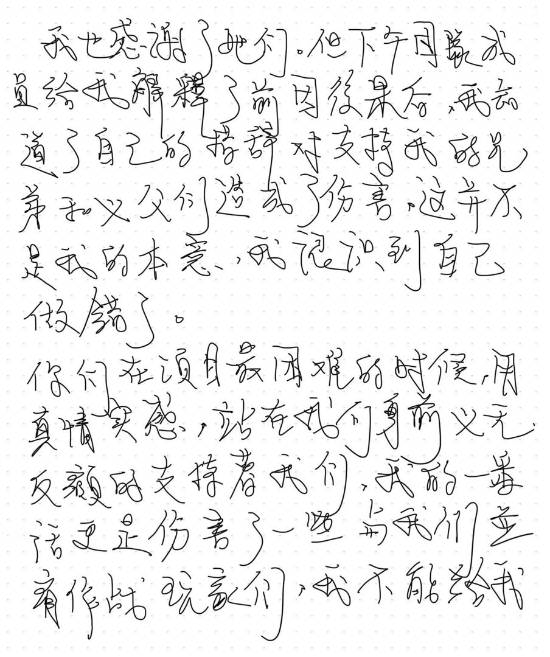 我也感谢了她们。但下午团队成
员给我解释了前因後果后，我知
道了自己的措辞对支持我的兄
弟和义父们造成了伤害，这并不
是我的本意，我认识到自己
做错了。
你们在项目最困难的时候，用
真情实感，站在我们身前义无
反顾的支持着我们，我的一番
话更是伤害了一些与我们并
肩作战玩家们，我不能给我